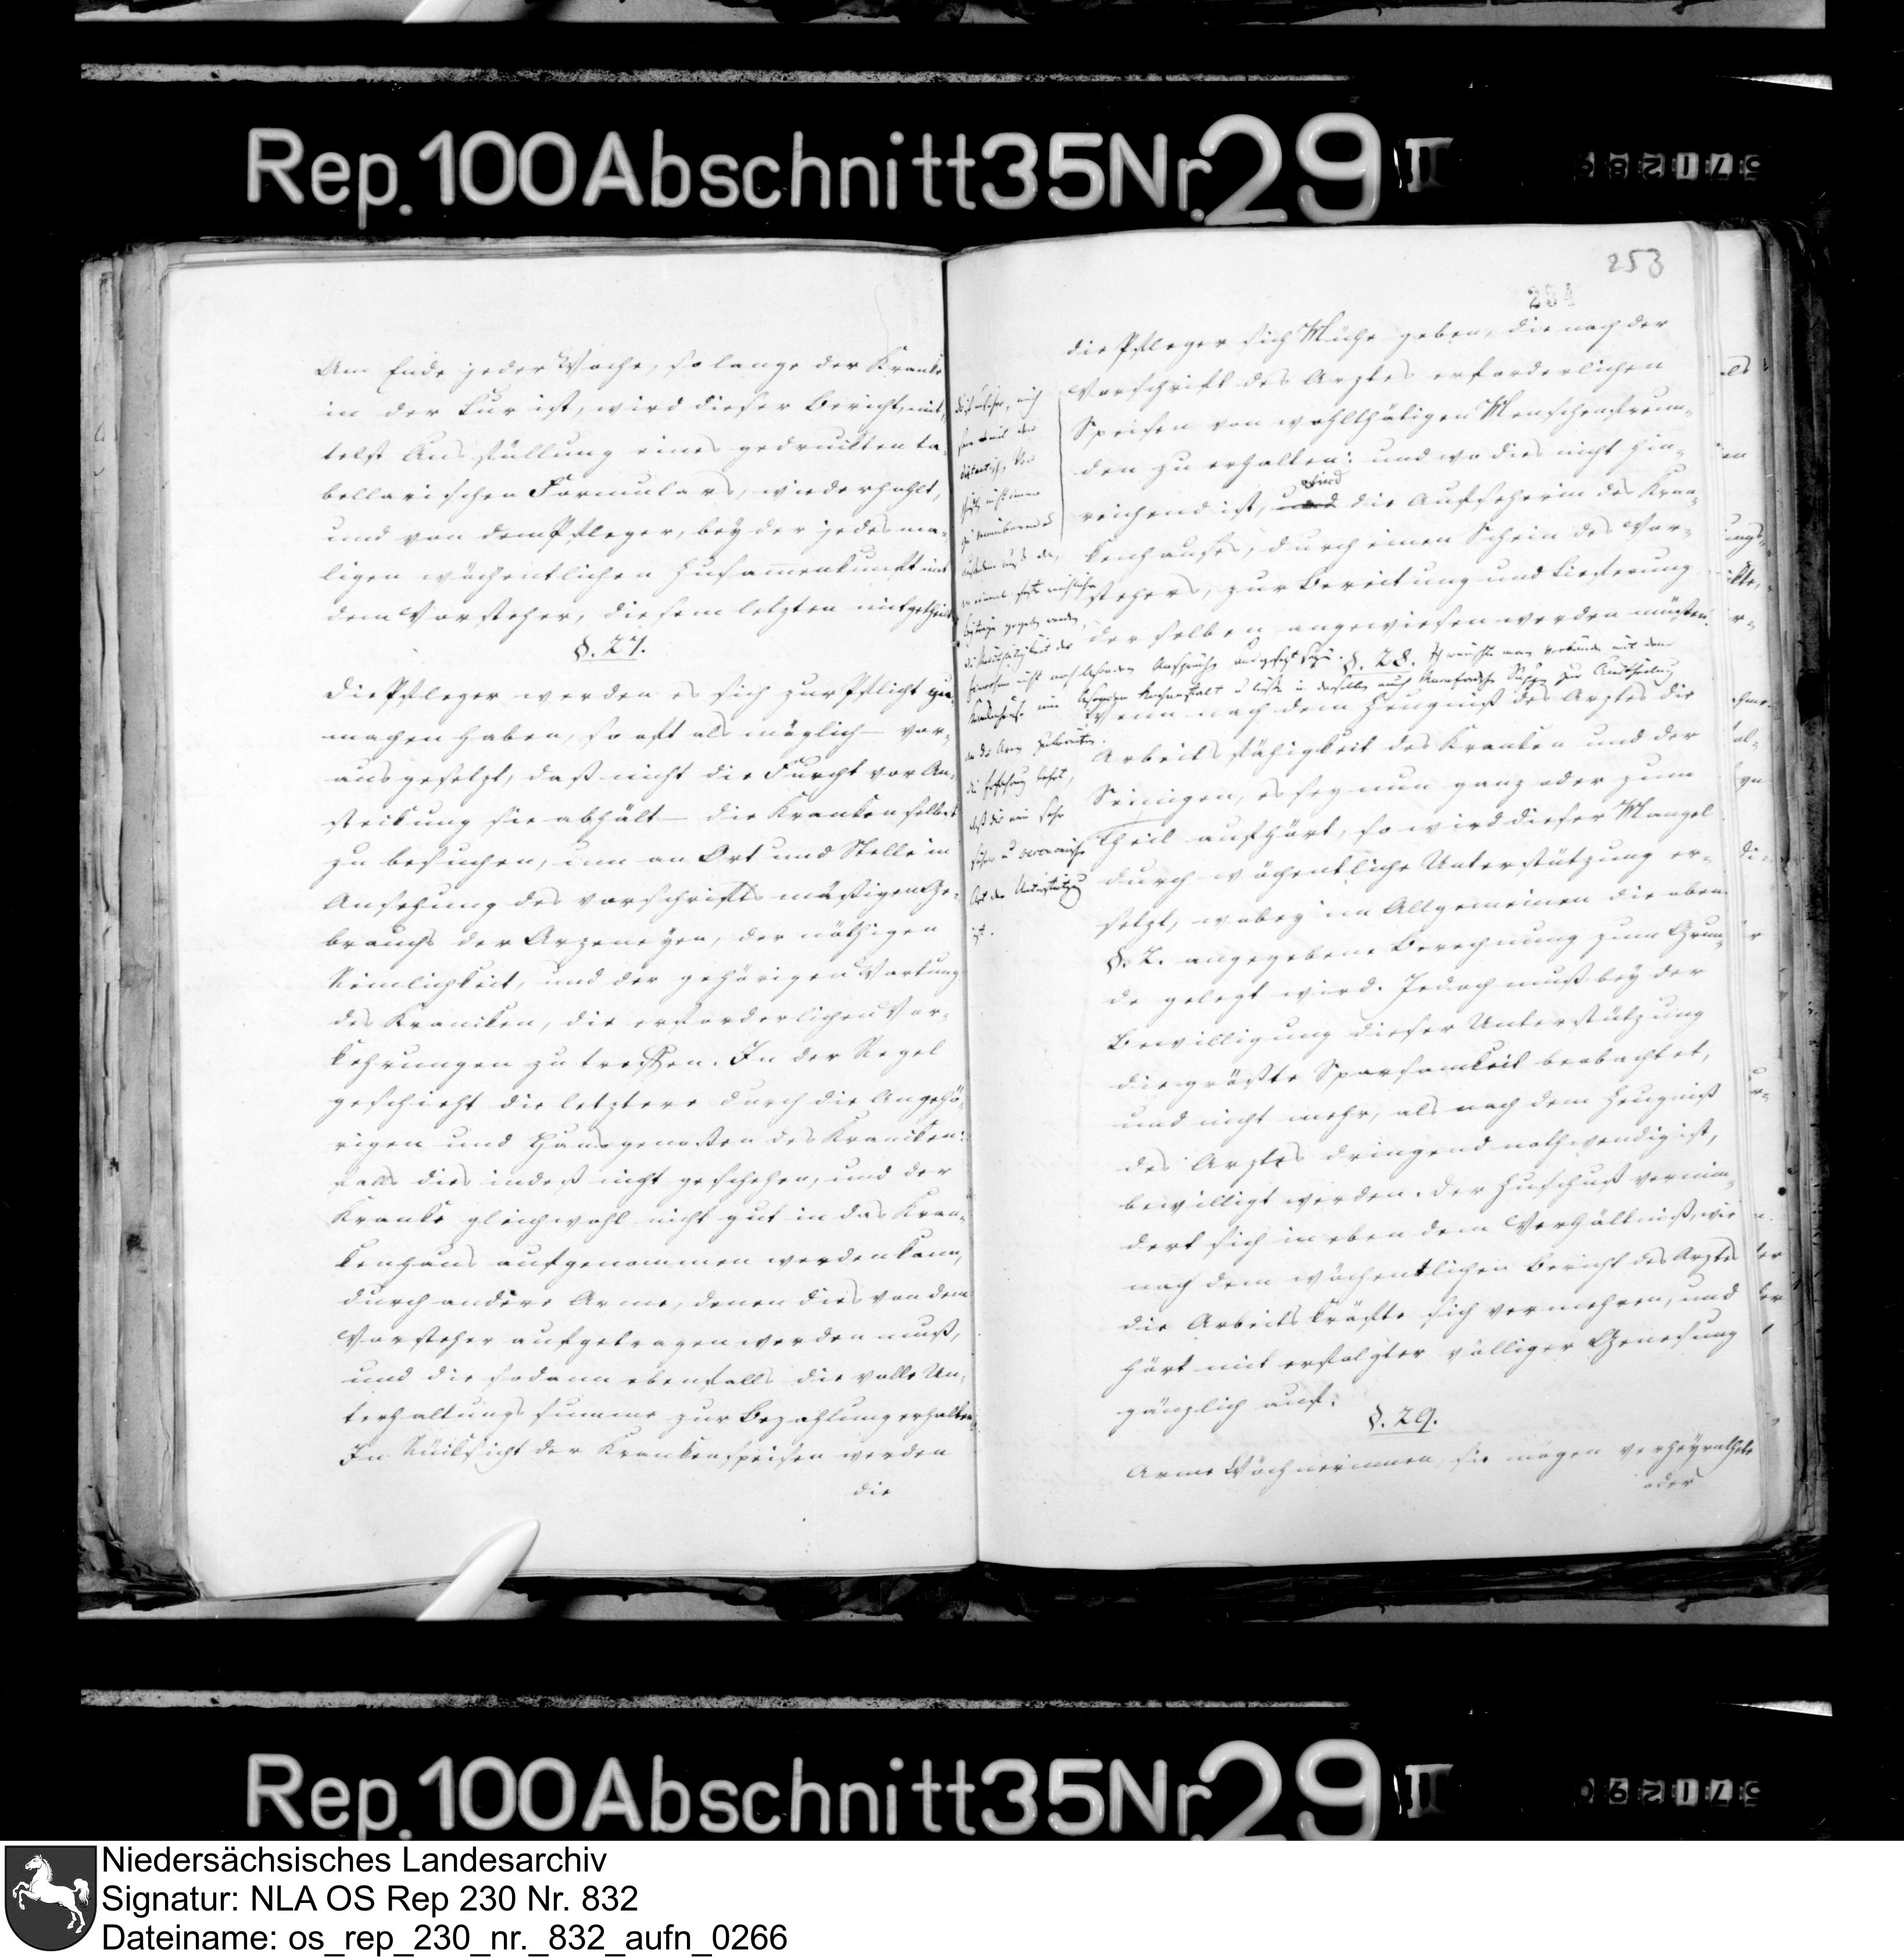 Rep. 100 Abschnitt 35 Nr. 29 II
Am Ende jeder Woche, so lange der Kranke
in der Cur ist, wird dieser Bericht, mit-
telst Ausfüllung eines gedruckten ta-
bellarischen Formulars, wiederhohlt,
und von dem Pfleger, bey der jedesma-
ligen wöchentlichen Zusamenkunft mit
dem Vorsteher, diesem letzten mitgetheilt
§. 27.
Die Pfleger werden es sich zur Pflicht zu
machen haben, so oft als möglich – vor-
ausgesetzt, daß nicht die Furcht vor An-
steckung sie abhält – die Kranken selbst
zu besuchen, um an Ort und Stelle in
Ansehung des vorschriftsmäßigen Ge-
brauchs der Arzeneyen, der nöthigen
Reinlichkeit, und der gehörigen Wartung
des Krancken, die erforderlichen Vor-
kehrungen zu treffen. In der Regel
geschieht die letztere durch die Angehö-
rigen und Hausgenoßen des Krancken:
falls dies indeß nicht geschehen, und der
Kranke gleichwohl nicht gut in das Kran-
kenhaus aufgenommen werden kann,
durch andere Arme, denen dies von dem
Vorsteher aufgetragen werden muß,
und die sodann ebenfalls die volle Un-
terhaltungs summe zur Bezahlung erhalten.
In Rücksicht der Krankenspeisen werden
die
253
254
die Pfleger sich Mühe geben, die nach der
Vorschrift des Arztes erforderlichen
Speisen von wohlthätigen Menschenfreun-
den zu erhalten: und wo dies nicht hin-
wird
reichend ist, die Aufseherin des Kran-
kenhauses, durch einen Schein des Vor-
stehers, zur Bereitung und Lieferung
derselben angewiesen werden müßten.
§. 28. Ich wünschte man verbände mit dem
Krankenhause eine besondere Kochanstalt u ließe in derselben auch Rumfordsche Suppe zur Austheilung
an die Arme zubereiten.
die Erfahrung lehrt,
daß dies eine sehr
Art der Unterstützung
ist.
Wenn nach dem Zeugniß des Arztes die
Arbeitsfähigkeit des Kranken und der
Seinigen, es sey nun ganz oder zum
Theil aufhört, so wird dieser Mangel
durch wöchentliche Unterstützung er-
setzt, wobey im Allgemeinen die oben
§. 2. angegebene Berechnung zum Grun-
de gelegt wird. Jedoch muß bey der
Bewilligung dieser Unterstützung
die größte Sparsamkeit beobachtet,
und nicht mehr, als nach dem Zeugniß
des Arztes dringend nothwendig ist,
bewilligt werden. Der Zuschuß vermin-
dert sich in eben dem Verhältniß, wie
nach dem wöchentlichen Bericht des Arztes
die Arbeitskräfte sich vermehren, und
hört mit erfolgter völliger Genesung
gänzlich auf.
§. 29.
Arme Wöchnerinnen, sie mögen verheyrathete
oder
Rep. 100 Abschnitt 35 Nr. 29 II
Niedersächsisches Landesarchiv
Signatur: NLA OS Rep 230 Nr. 832
Dateiname: os_rep_230_nr._832_aufn_0266